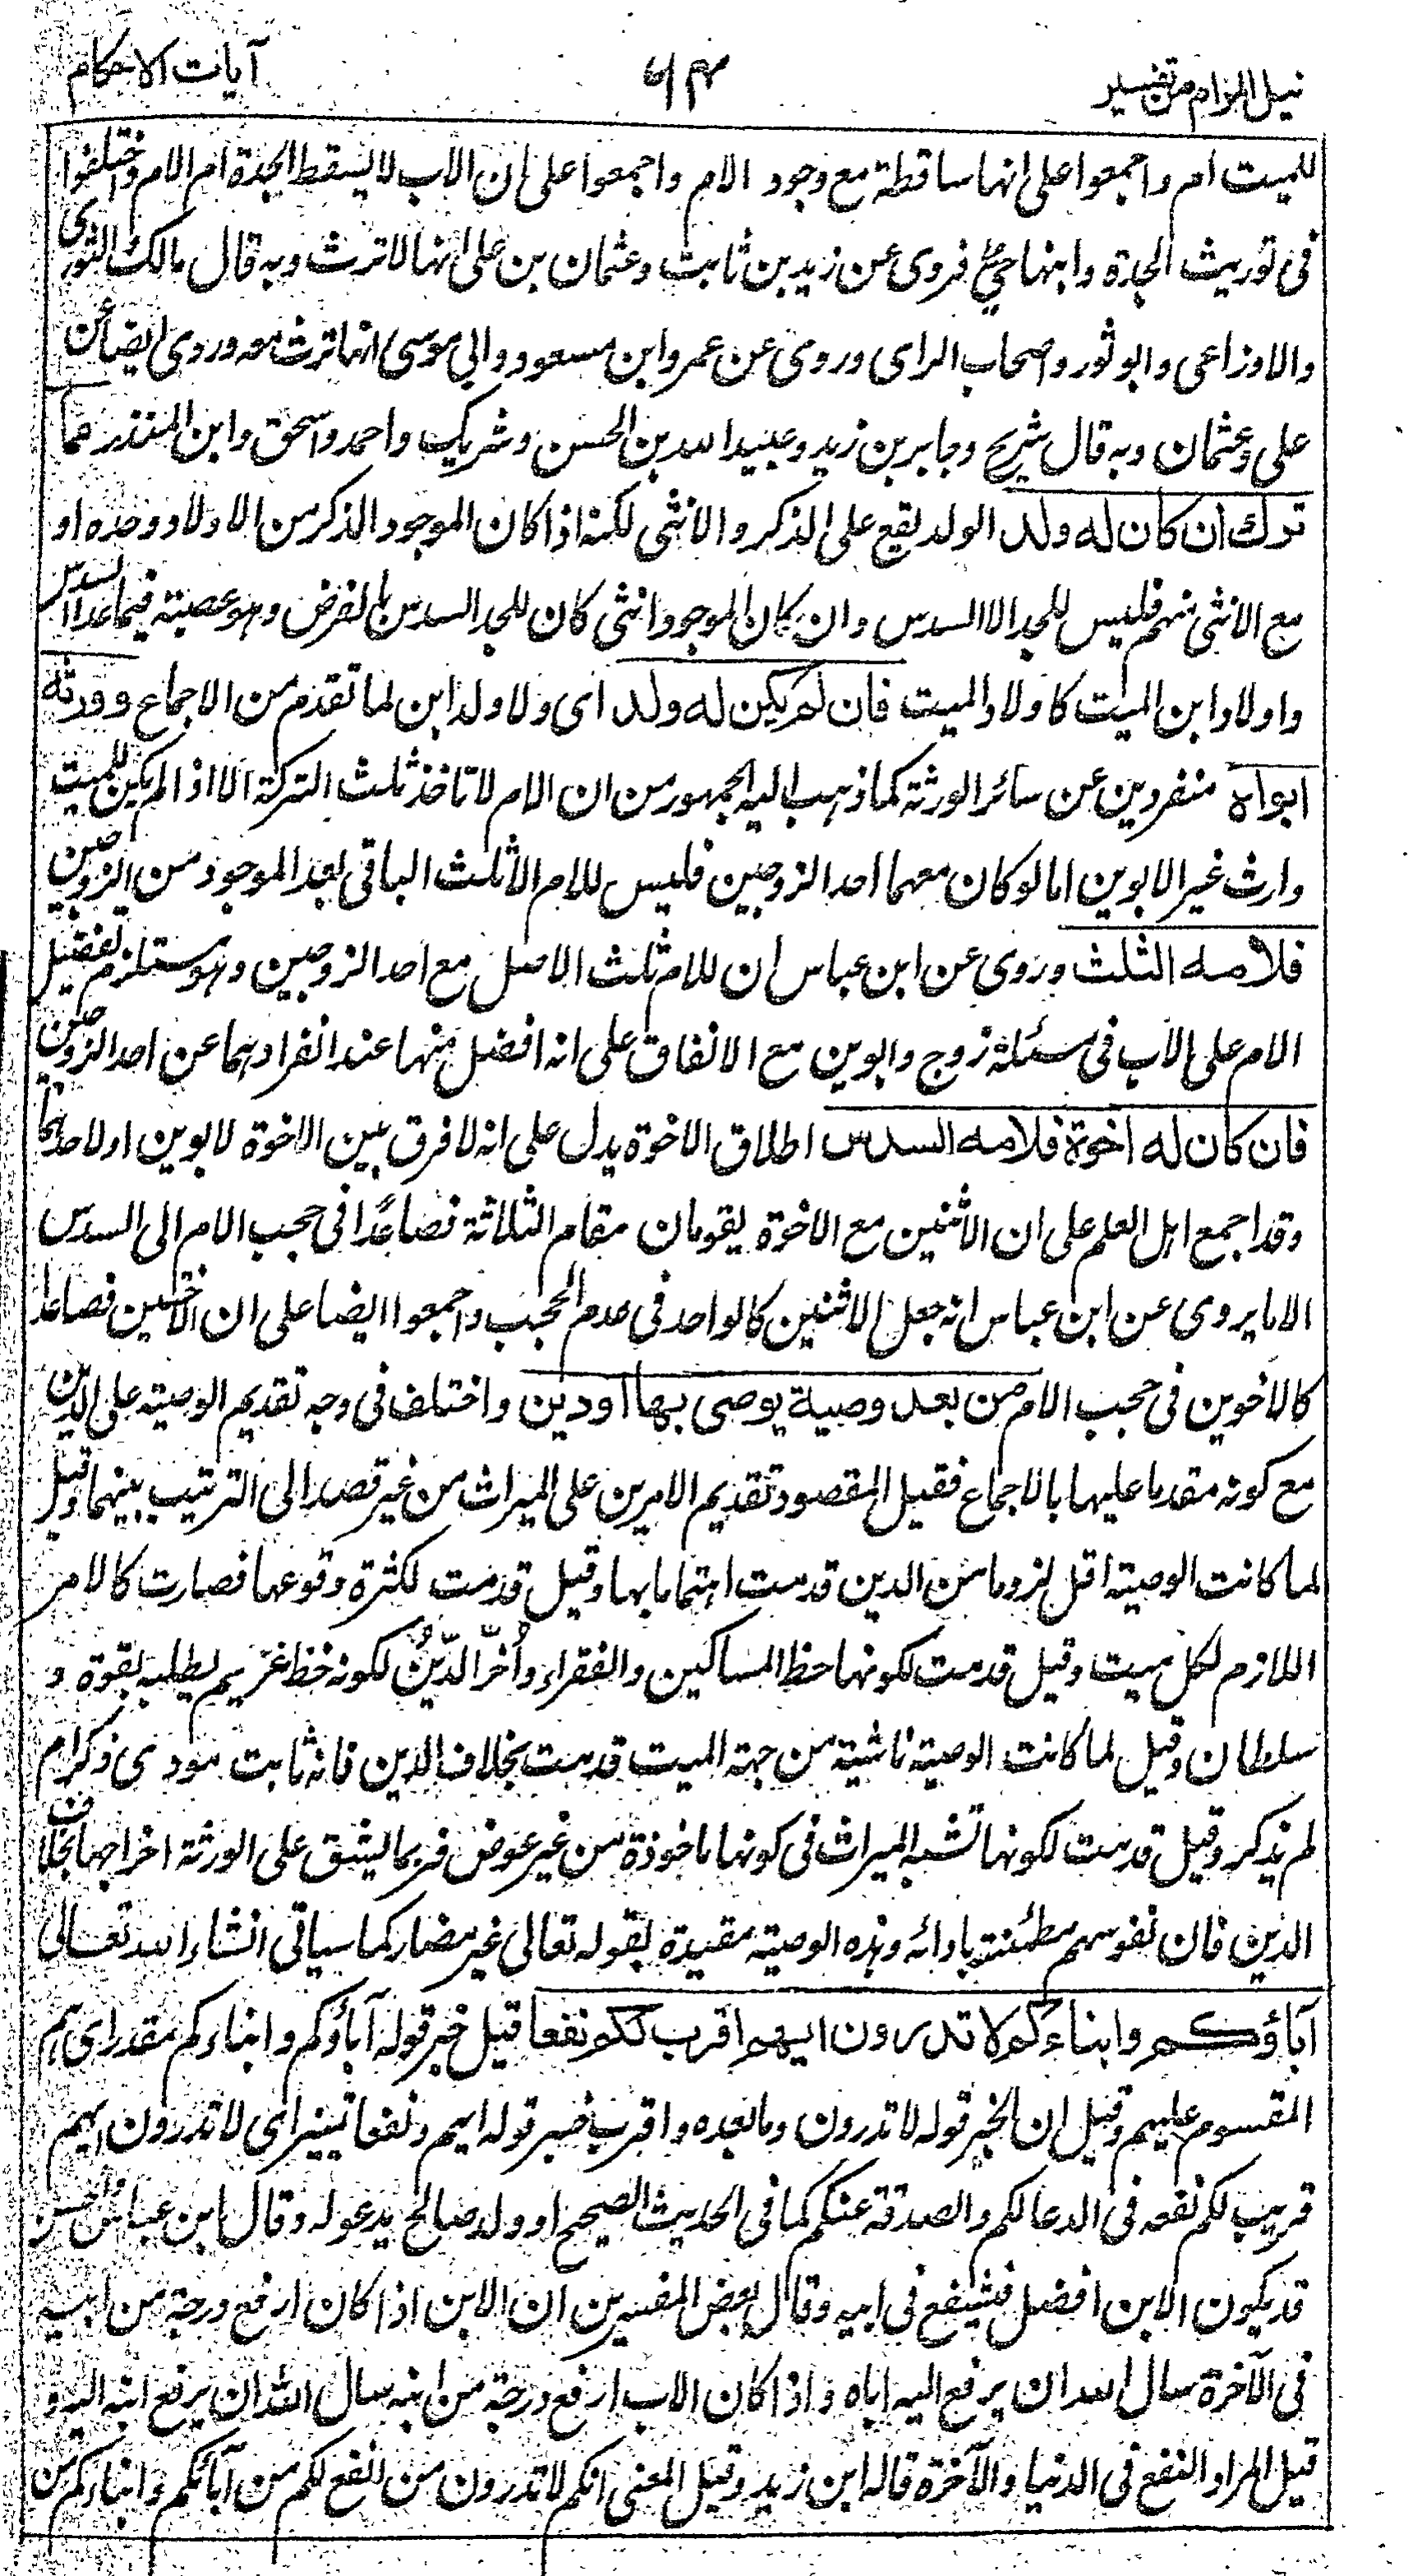 نيل المرام من تفسير
آيات الاحكام
للميت ام واجمعوا على انها ساقطة مع وجود الام واجمعوا على ان الاب لا يسقط الجدة ام الام واختلفوا
فى توريث الجدة وابنها حي فروى عن زيد بن ثابت وعثمان بن على انها لا ترث وبه قال مالك والثورى
والاوزاعى وابو ثور واصحاب الراى وروى عن عمر وابن مسعود وابي موسى انها ترث معه وروى ايضا عن
على وعثمان وبه قال شريح وجابر بن زيد وعبيد الله بن الحسن وشريك واحمد واسحق وابن المنذر مما
ترك ان كان له ولد الولد يقع على الذكر والانثى لكنه اذا كان الموجود الذكر من الاولاد وحده او
مع الانثى منهم فليس للجد الا السدس وان كان الموجود انثى كان للجد السدس بالفرض وهو عصبة فيما عدا السدس
واولاد ابن الميت كاولاد الميت فان لم يكن له ولد اى ولا ولد ابن لما تقدم من الاجماع وورثه
ابواه منفردين عن سائر الورثة كما ذهب اليه الجمهور من ان الام لا تاخذ ثلث التركة الا اذا لم يكن للميت
وارث غير الابوين اما لو كان معهما احد الزوجين فليس للام الا ثلث الباقى بعد الموجود من الزوجين
فلامه الثلث وروى عن ابن عباس ان للام ثلث الاصل مع احد الزوجين وهو مستلزم تفضيل
الام على الاب فى مسئلة زوج وابوين مع الاتفاق على انه افضل منها عند انفرادهما عن احد الزوجين
فان كان له اخوة فلامه السدس اطلاق الاخوة يدل على انه لا فرق بين الاخوة لابوين او لاحدهما
وقد اجمع اهل العلم على ان الاثنين مع الاخوة يقومان مقام الثلاثة فصاعدا فى حجب الام الى السدس
الا ما يروى عن ابن عباس انه جعل الاثنين كالواحد فى عدم الحجب واجمعوا ايضا على ان الاختين فصاعدا
كالاخوين فى حجب الام من بعد وصية يوصى بها او دين واختلف فى وجه تقديم الوصية على الدين
مع كونه مقدما عليها بالاجماع فقيل المقصود تقديم الامرين على الميراث من غير قصد الى الترتيب بينهما وقيل
لما كانت الوصية اقل لزوما من الدين قدمت اهتماما بها وقيل قدمت لكثرة وقوعها فصارت كالامر
اللازم لكل ميت وقيل قدمت لكونها حظ المساكين والفقراء وأُخّر الدّينُ لكونه حظ غريم يطلبه بقوة و
سلطان وقيل لما كانت الوصية ناشية من جهة الميت قدمت بخلاف الدين فانه ثابت مودى ذكر ام
لم يذكر وقيل قدمت لكونها تشبه الميراث فى كونها ماخوذة من غير عوض فربما يشق على الورثة اخراجها بخلاف
الدين فان نفوسهم مطمئنة بادائه وهذه الوصية مقيدة بقوله تعالى غير مضار كما سياتى انشاء الله تعالى
آباؤكم وابناءكم لا تدرون ايهم اقرب لكم نفعا قيل خبر قوله آباؤكم وابناءكم مقدر اى هم
المقسوم عليهم وقيل ان الخبر قوله لا تدرون وما بعده واقرب خبر قوله ايهم ونفعا تمييز اى لا تدرون ايهم
قريب لكم نفعه فى الدعا لكم والصدقة عنكم كما فى الحديث الصحيح او ولد صالح يدعو له وقال ابن عباس والحسن
قد يكون الابن افضل فيشفع فى ابيه وقال بعض المفسرين ان الابن اذا كان ارفع درجة من ابيه
فى الآخرة سال الله ان يرفع اليه اباه واذا كان الاب ارفع درجة من ابنه سال الله ان يرفع ابنه اليه و
قيل المراد النفع فى الدنيا والآخرة قاله ابن زيد وقيل المعنى انكم لا تدرون من انفع لكم من آبائكم وابناءكم من